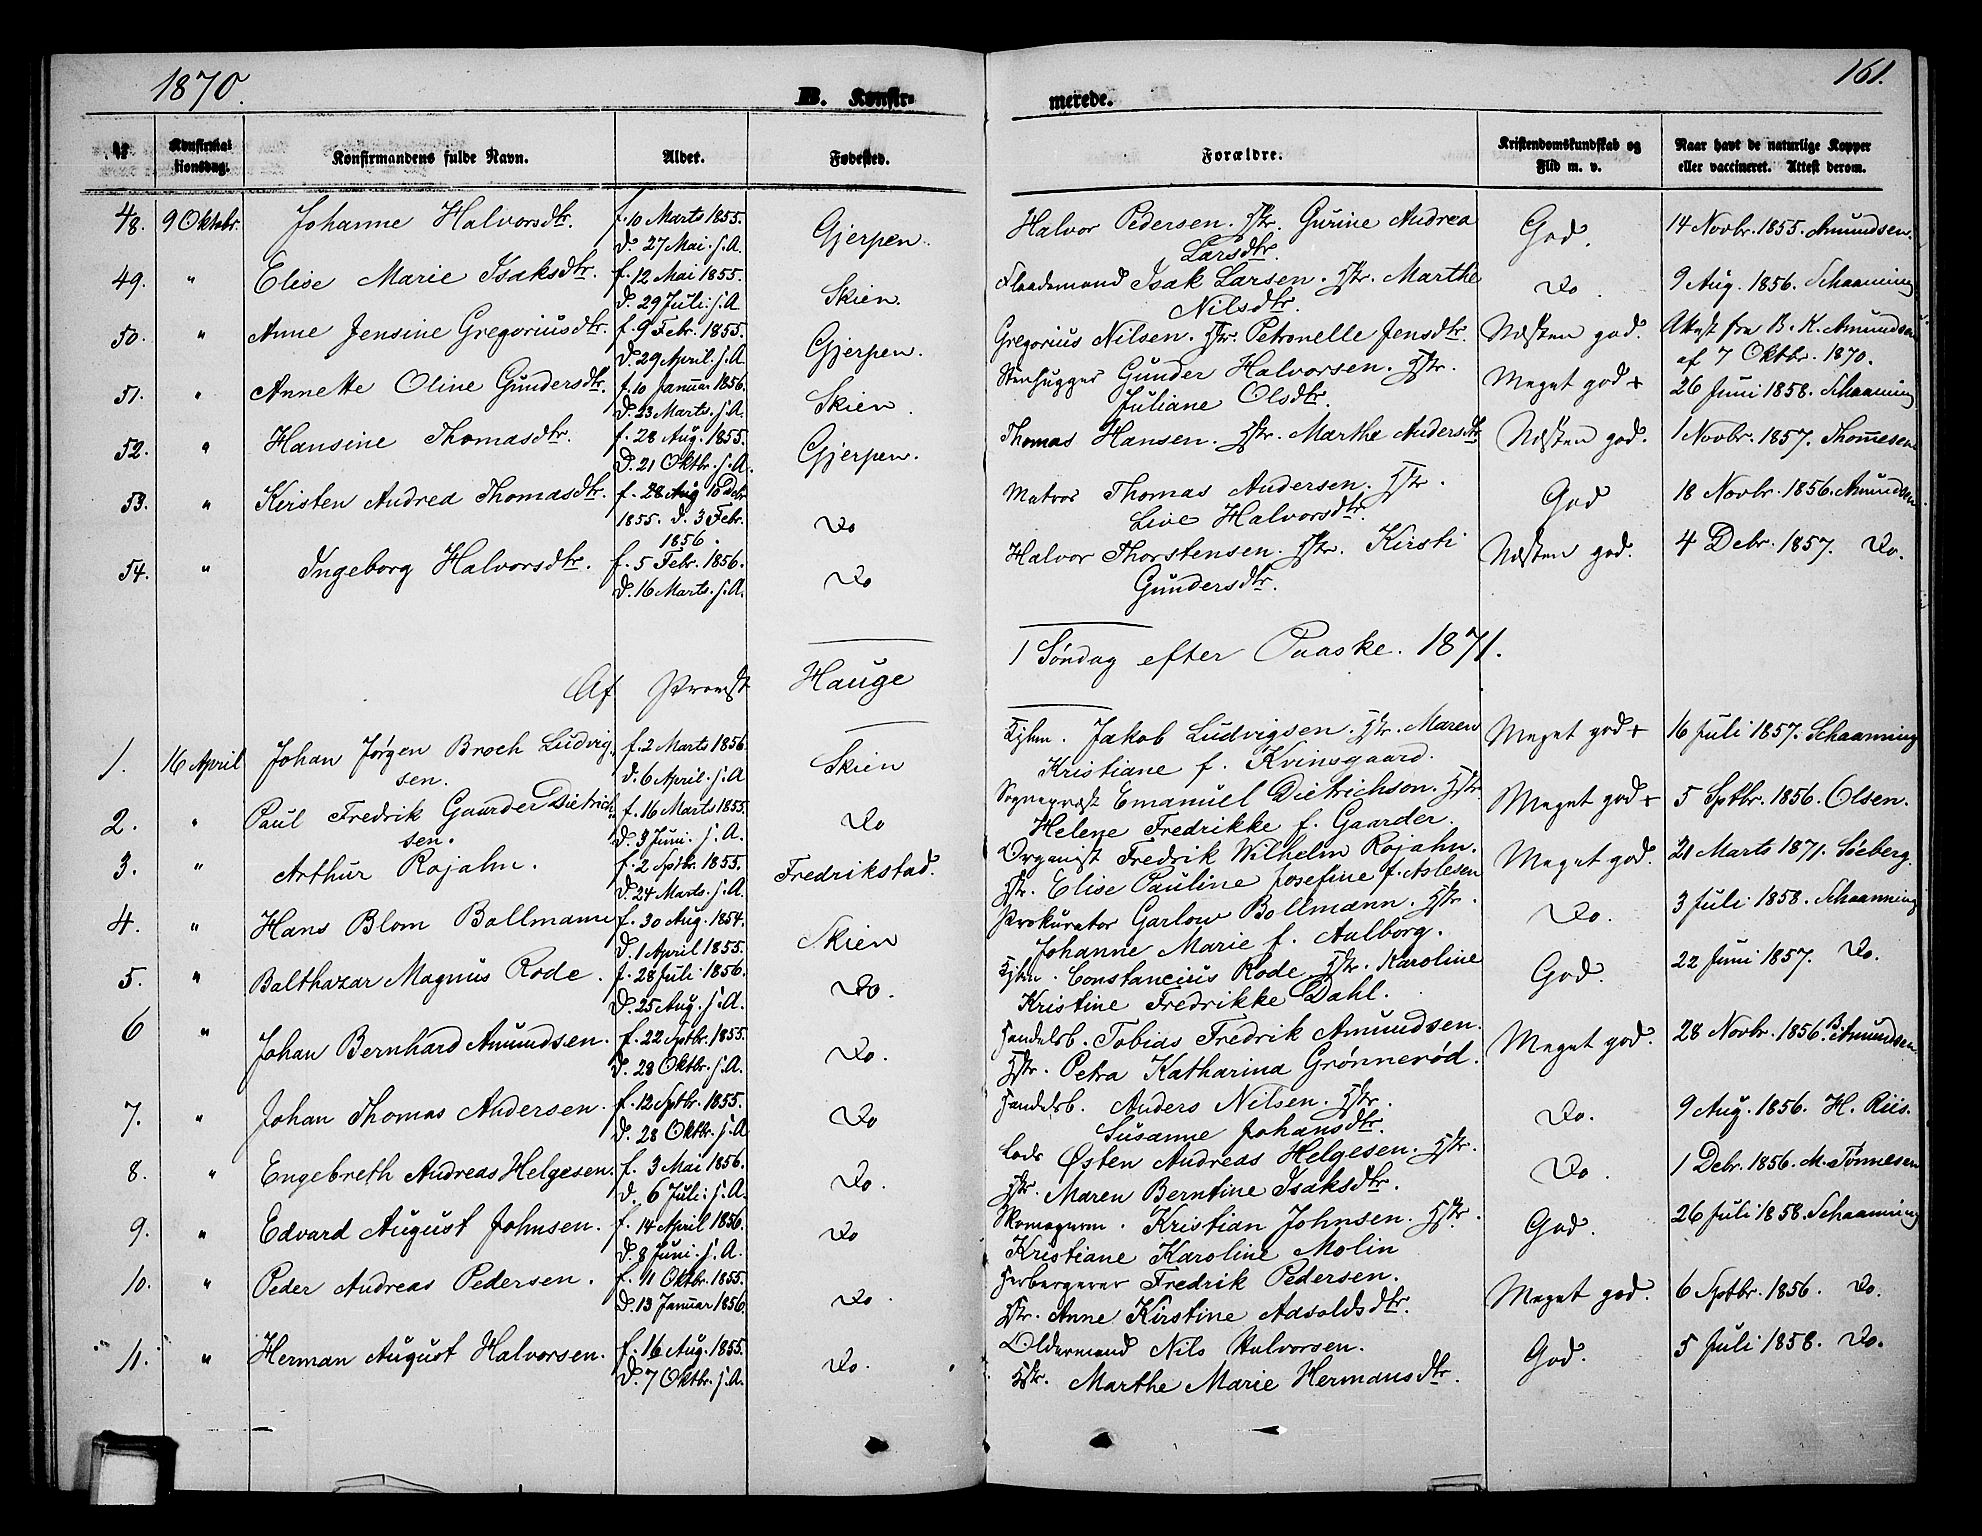 1870.
B. Konfir-
merede.
161.
Konfirma-
tionsdag.
Konfirmandens fulde Navn.
Alder.
Fødested.
Forældre.
Kristendomskundskab og
Flid m. v.
Naar havt de naturlige Kopper
eller vaccineret. Attest derom.
48. 9 Oktobr. Johanne Halvorsdtr. f. 10 Marts 1855. Gjerpen. Halvor Pedersen. Hstr. Gurine Andrea God. 14 Novbr. 1855. Amundsen.
D. 27 Mai. s.A. Larsdtr.
49. " Elise Marie Isaksdtr. f. 12 Mai 1855. Skien. Flaademand Isak Larsen. Hstr. Marthe Do. 9 Aug. 1856. Schaanning
D. 29 Juli. s.A Nilsdtr.
50. " Anne Jensine Gregoriusdtr. f. 9 Febr. 1855. Gjerpen. Gregorius Nilsen. Hstr. Petronelle Jensdtr. Næsten god. Attest fra B. K. Amundsen
D. 29 April. s.A af 7 Oktbr. 1870.
51. " Annette Oline Gundersdtr. f. 10 Januar 1856. Skien. Stenhugger Gunder Halvorsen. Hstr. Meget god + 26 Juni 1858. Schaanning
D. 23 Marts. s.A. Juliane Olsdtr.
52. " Hansine Thomasdtr. f. 28 Aug. 1855. Gjerpen. Thomas Hansen. Hstr. Marthe Andersdtr Næsten god. 1 Novbr. 1857. Thommesen
D. 21 Oktbr. s.A.
53. " Kirsten Andrea Thomasdtr. f. 28 Aug 10 Debr Do Matros Thomas Andersen. Hstr. God 18 Novbr. 1856. Amundsen
1855. D. 3 Febr. Live Halvorsdtr.
1856.
54. " Ingeborg Halvorsdtr. f. 5 Febr. 1856. Do Halvor Thorstensen. Hstr. Kirsti Næsten god. 4 Debr. 1857. Do.
D. 16 Marts. s.A. Gundersdtr.
1 Søndag efter Paaske. 1871.
Af Provst Hauge
1. 16 April Johan Jørgen Broch Ludvig- f. 2 Marts 1856. Skien Kjbm. Jakob Ludvigsen. Hstr. Maren Meget god + 16 Juli 1857. Schaanning
sen. D. 6 April. s.A Kristiane f. Kvinsgaard.
2. " Paul Fredrik Gaarder Dietrich- f. 16 Marts 1855. Do Sognepræst Emanuel Dietrichson. Hstr. Meget god + 5 Sptbr. 1856. Olsen.
sen. D. 3 Juni. s.A. Helene Fredrikke f. Gaarder.
3. " Arthur Rojahn. f. 2 Sptbr. 1855. Fredrikstad. Organist Fredrik Wilhelm Rojahn. Meget god. 21 Marts 1871. Søeberg.
D. 24 Marts. s.A. Hstr. Elise Pauline Josefine f. Aslesen
4. " Hans Blom Bollmann f. 30 Aug. 1854. Skien Prokurator Garlow Bollmann. Hstr. Do. 3 Juli 1858. Schaanning
D. 1 April 1855. Johanne Marie f. Aalborg.
5. " Balthazar Magnus Rode. f. 28 Juli 1856. Do. Kjbm. Constancius Rode. Hstr. Karoline God. 22 Juni 1857. Do.
D. 25 Aug. s.A. Kristine Fredrikke Dahl.
6 " Johan Bernhard Amundsen. f. 22 Sptbr. 1855. Do. Handelsb. Tobias Fredrik Amundsen. Meget god. 28 Novbr. 1856. B. Amundsen
D. 28 Oktbr. s.A. Hstr. Petra Katharina Grønnerød.
7. " Johan Thomas Andersen. f. 12 Sptbr. 1855. Do Handelsb. Anders Nilsen. Hstr. Do. 9 Aug. 1856. H. Riis.
D. 28 Oktbr. s.A Susanne Johansdtr.
8. " Engebreth Andreas Helgesen. f. 3 Mai 1856. Do. Lods Østen Andreas Helgesen. Hstr. Do. 1 Debr. 1856. M. Tønnesen
D. 6 Juli. s.A. Hstr. Maren Berntine Isaksdtr.
9. " Edvard August Johnsen. f. 14 April 1856. Do Skomagerm. Kristian Johnsen. Hstr. God. 26 Juli 1858. Schaanning
D. 8 Juni. s.A. Kristiane Karoline Molin
10. " Peder Andreas Pedersen. f. 11 Oktbr. 1855. Do. Herbergerer Fredrik Pedersen. Meget god. 6 Sptbr. 1856. Do.
D. 13 Januar 1856. Hstr. Anne Kirstine Aasoldsdtr.
11. " Herman August Halvorsen. f. 16 Aug. 1855. Do. Oldermand Nils Halvorsen. God. 5 Juli 1858. Do.
D. 7 Oktbr. s.A. Hstr. Marthe Marie Hermansdtr.